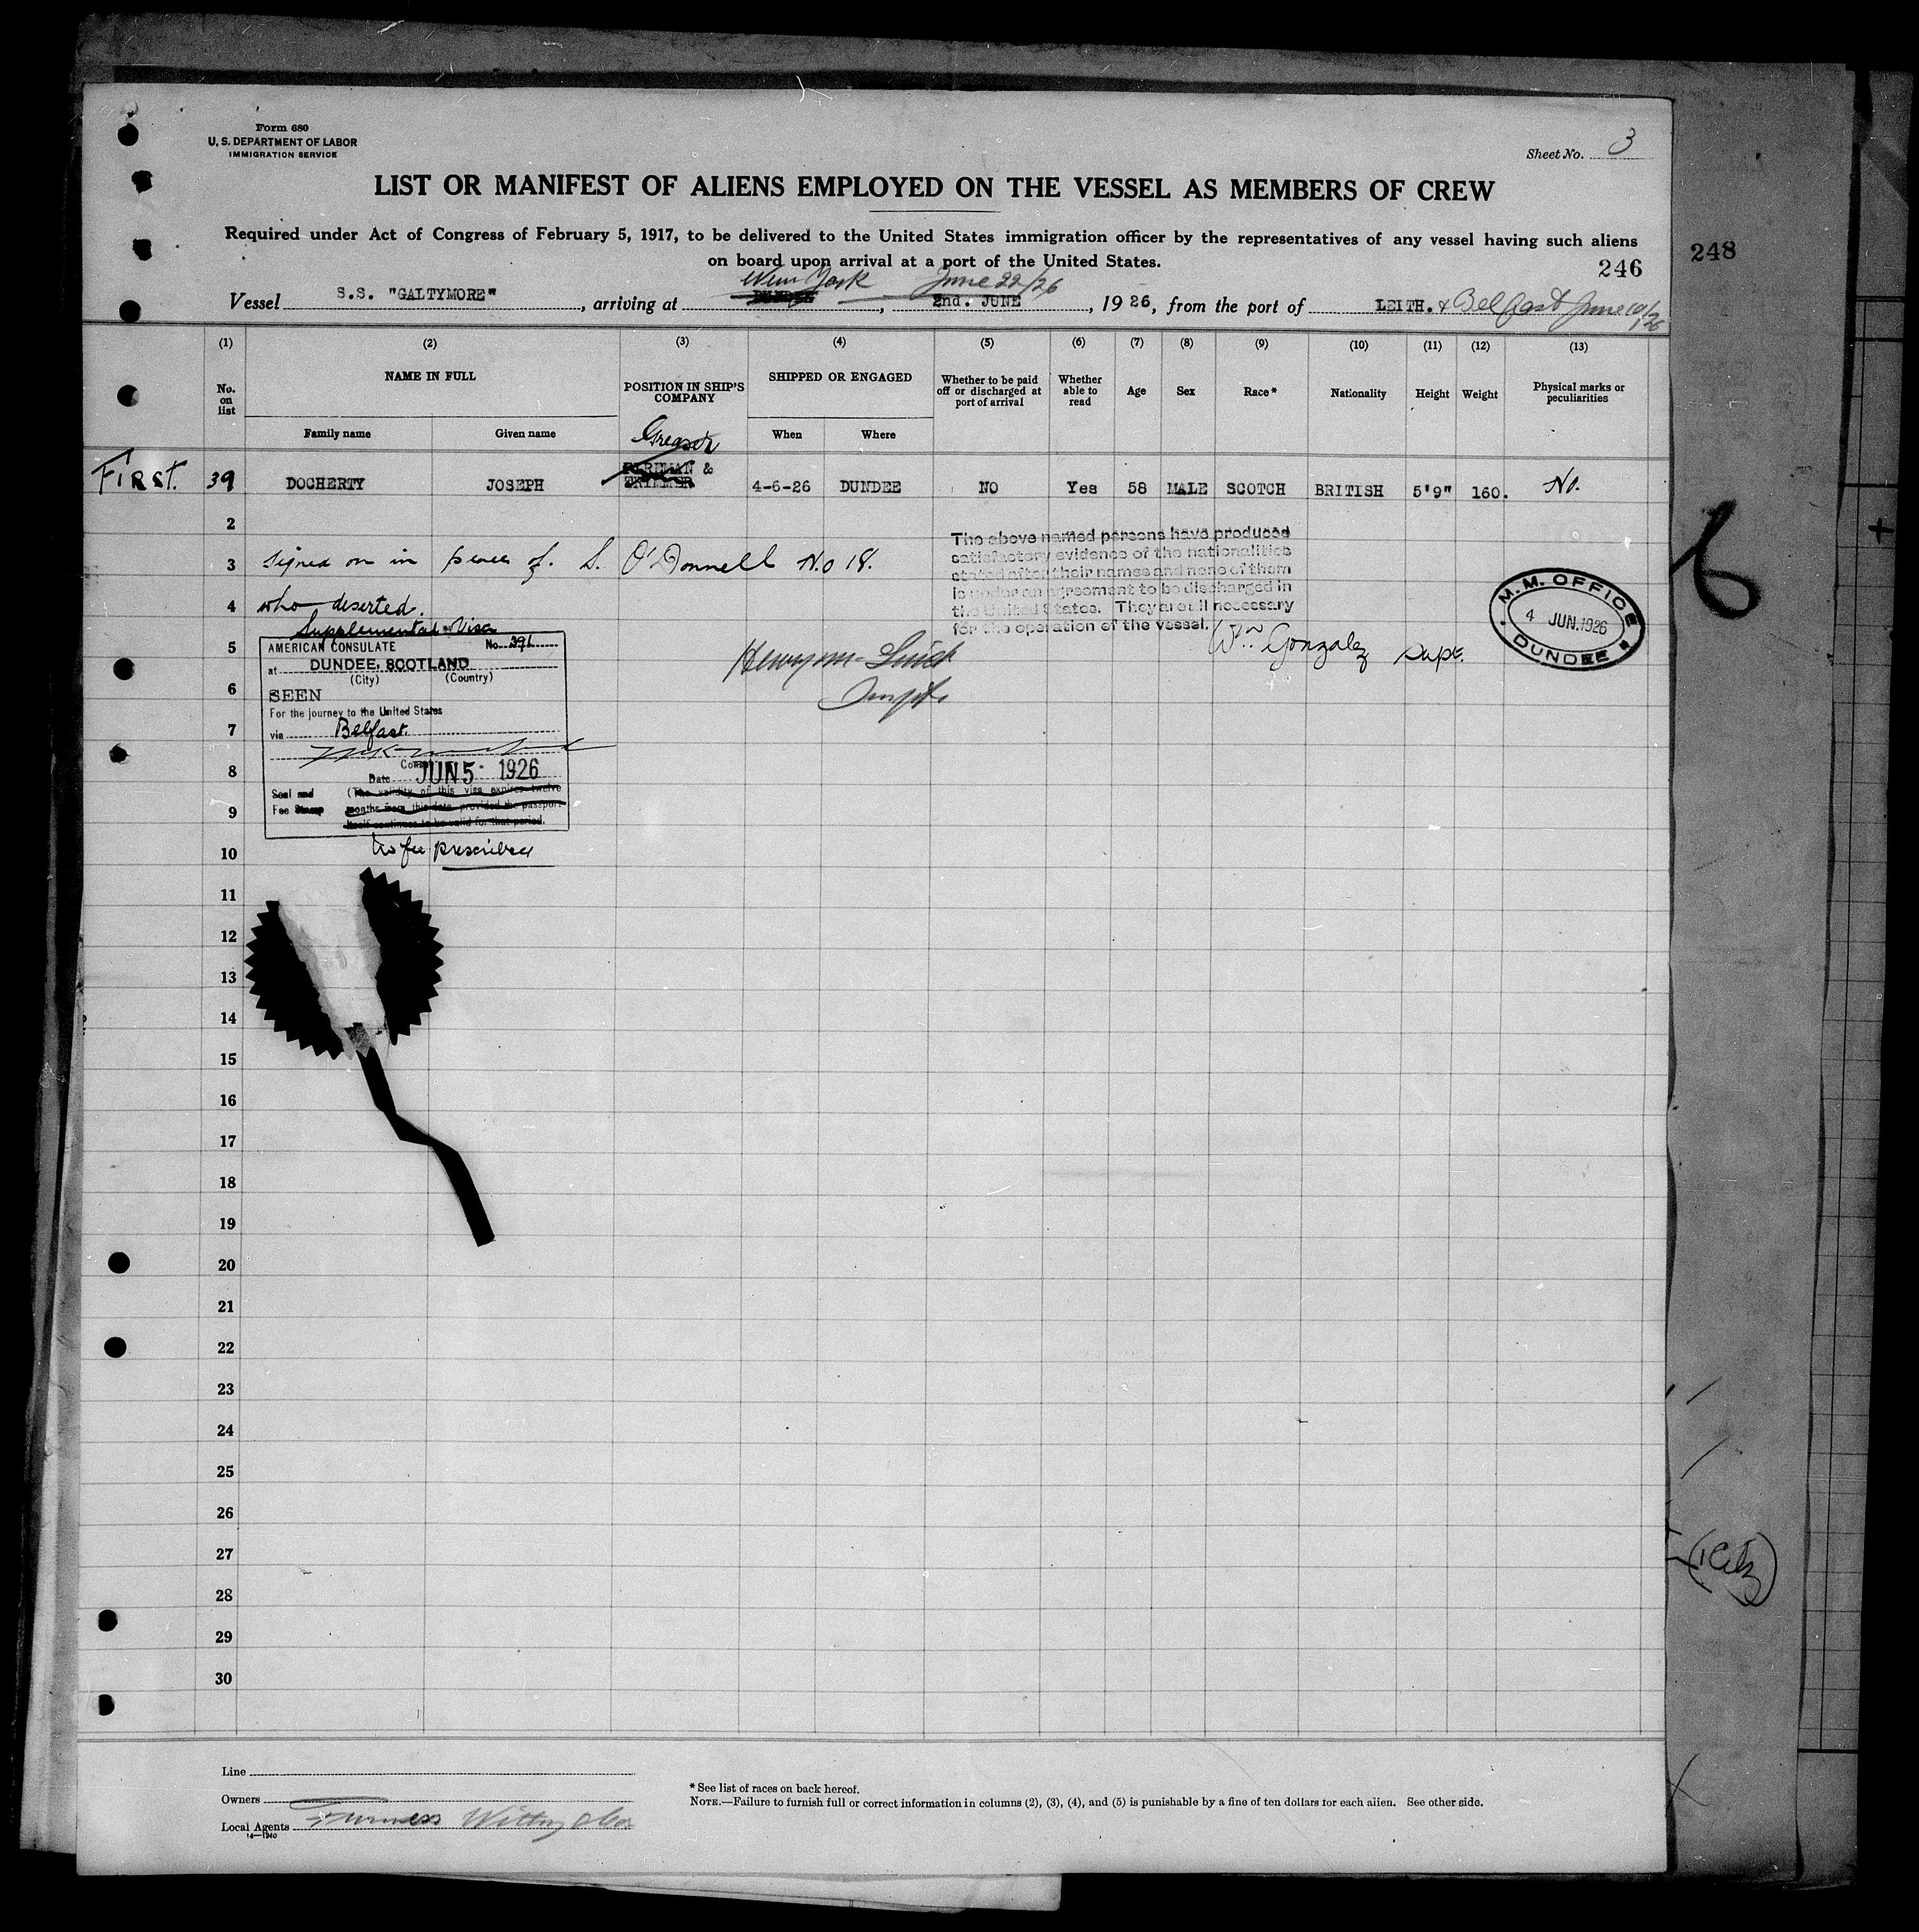 Form 680
U. S. DEPARTMENT OF LABOR
IMMIGRATION SERVICE
Sheet No. 3
LIST OR MANIFEST OF ALIENS EMPLOYED ON THE VESSEL AS MEMBERS OF CREW
Required under Act of Congress of February 5, 1917, to be delivered to the United States immigration officer by the representatives of any vessel having such aliens
on board upon arrival at a port of the United States.
246
248
New York June 22/26
Vessel S.S. "GALTYMORE", arriving at DUNDEE, 2nd. JUNE, 1926, from the port of LEITH. & Belfast June 10/26
(1) (2) (3) (4) (5) (6) (7) (8) (9) (10) (11) (12) (13)
No. on list
NAME IN FULL
Family name Given name
POSITION IN SHIP'S COMPANY
SHIPPED OR ENGAGED
When Where
Whether to be paid off or discharged at port of arrival
Whether able to read
Age
Sex
Race*
Nationality
Height
Weight
Physical marks or peculiarities
Greaser
FIREMAN &
TRIMMER
FIRST. 39 DOCHERTY JOSEPH 4-6-26 DUNDEE NO Yes 58 MALE SCOTCH BRITISH 5'9" 160. No.
2
3 Signed on in place of. S. O'Donnell No 18.
4 who deserted.
The above named persons have produced
satisfactory evidence of the nationalities
stated after their names and none of them
is under an agreement to be discharged in
the United States. They are all necessary
for the operation of the vessel.
Wm. Gonzalez Supt.
M. M. OFFICE
4 JUN. 1926
DUNDEE
Supplemental Visa
5
AMERICAN CONSULATE No. 391
at DUNDEE, SCOTLAND
(City) (Country)
6
SEEN
For the journey to the United States
7
via Belfast.
8
Date JUN 5 - 1926
Seal and (The validity of this visa expires twelve
Fee Stamp months from this date provided the passport
itself continues to be valid for that period.
9
No fee prescribed
10
11
12
13
14
15
16
17
18
19
20
21
22
23
24
25
26
27
28
29
30
6
Line
Owners
Local Agents Furness Withy & Co
14—1240
* See list of races on back hereof.
NOTE.—Failure to furnish full or correct information in columns (2), (3), (4), and (5) is punishable by a fine of ten dollars for each alien. See other side.